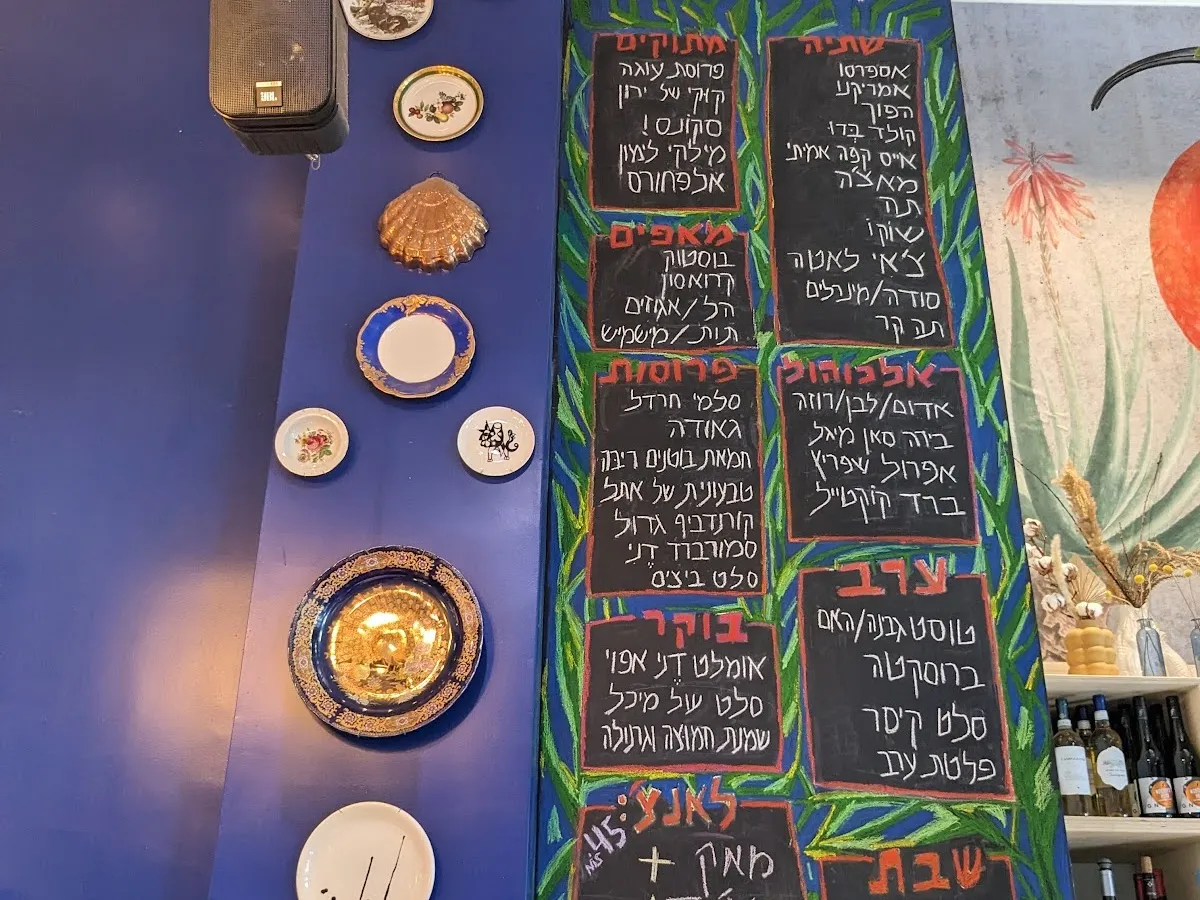 JBL
שתיה
אספרסו
אמריקנו
הפוך
קולד בְּרוּ
אייס קפה אמיתי
מאצ'ה
תה
שׁוֹקוֹ
צ'אי לאטה
סודה/מינרלים
תה קר
מתוקים
פרוסת עוגה
קוקי של ירון
סקונס!
מילקי לימון
אלפחורס
מאפים
בוסטוק
קרואסון
הל/אגוזים
תות/מישמיש
אלכוהול
אדום/לבן/רוזה
בירה סאן מיגל
אפרול שפריץ
ברד קוקטייל
פרוסות
סלמי חרדל
גאודה
חמאת בוטנים ריבה
טבעונית של אתל
קורנדביף גדול
סמורברד דֶני
סלט ביצים
ערב
טוסט גבינה/האם
ברוסקטה
סלט קיסר
פלטת ערב
בוקר
אומלט דֶני אפוי
סלט של מיכל
שמנת חמוצה וגרנולה
לאנצ':
45
NIS
מאק
+
שבת